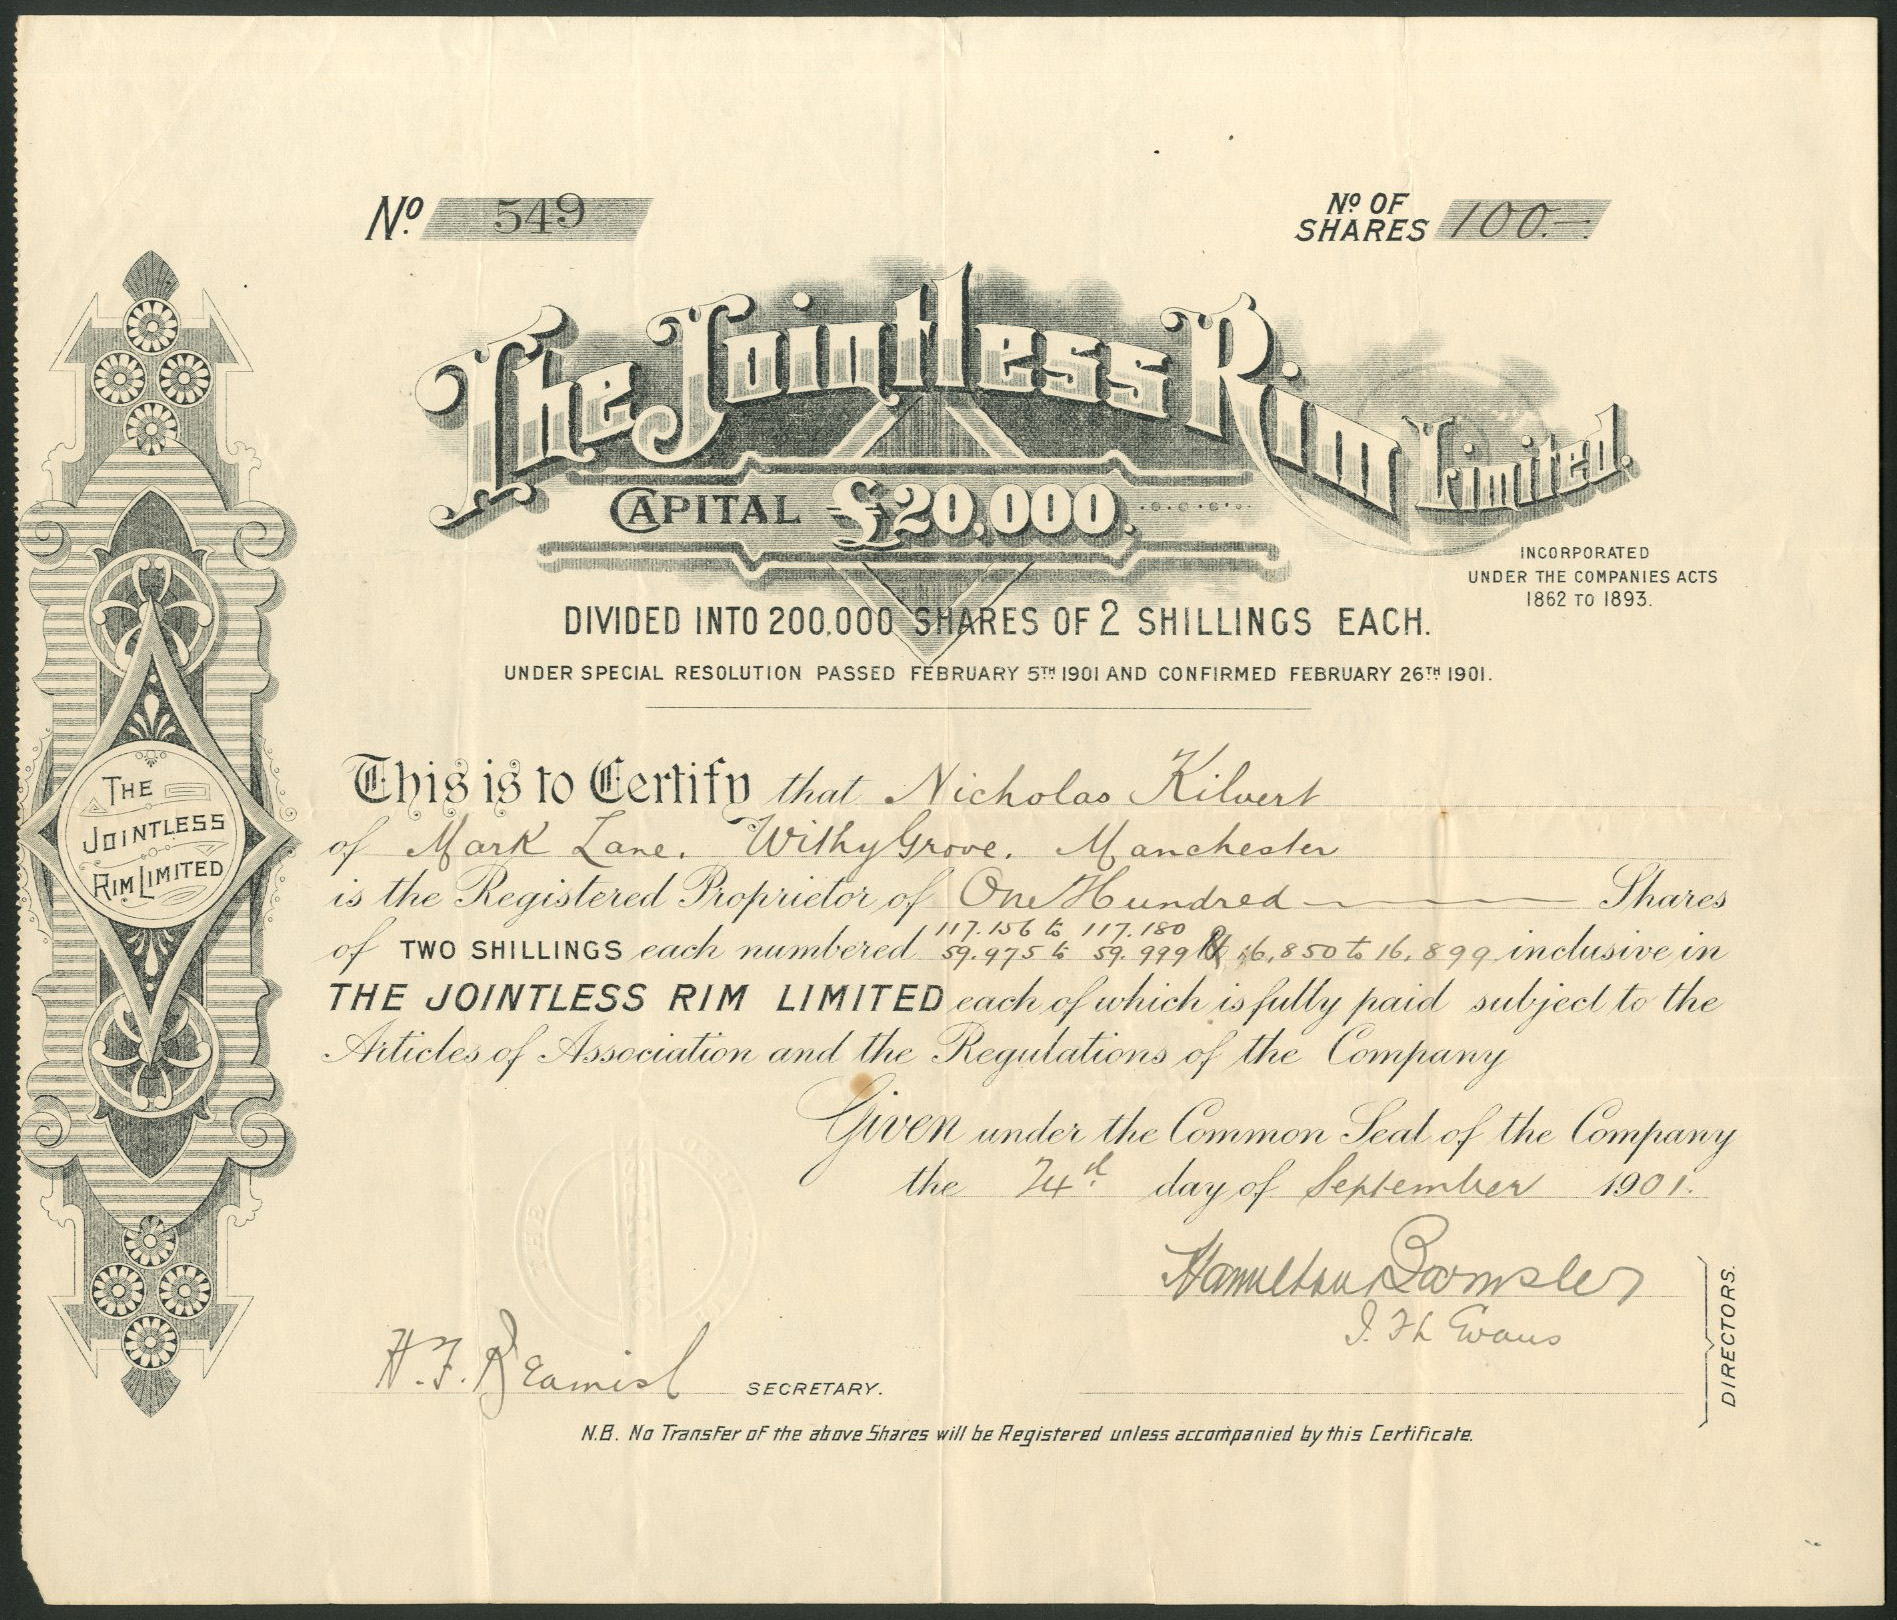 No. 549
No. OF SHARES 100.—
The Jointless Rim Limited.
CAPITAL £20,000.
INCORPORATED
UNDER THE COMPANIES ACTS
1862 TO 1893.
DIVIDED INTO 200,000 SHARES OF 2 SHILLINGS EACH.
UNDER SPECIAL RESOLUTION PASSED FEBRUARY 5TH 1901 AND CONFIRMED FEBRUARY 26TH 1901.
THE
JOINTLESS
RIM LIMITED
This is to Certify that Nicholas Kilvert
of Mark Lane. Withy Grove. Manchester
is the Registered Proprietor of One Hundred Shares
117.156 to 117.180
of TWO SHILLINGS each numbered 59.975 to 59.999 & 16,850 to 16,899 inclusive in
THE JOINTLESS RIM LIMITED each of which is fully paid subject to the
Articles of Association and the Regulations of the Company
Given under the Common Seal of the Company
the day of September 1901.
Evans
DIRECTORS.
H. F. SECRETARY.
N.B. No Transfer of the above Shares will be Registered unless accompanied by this Certificate.